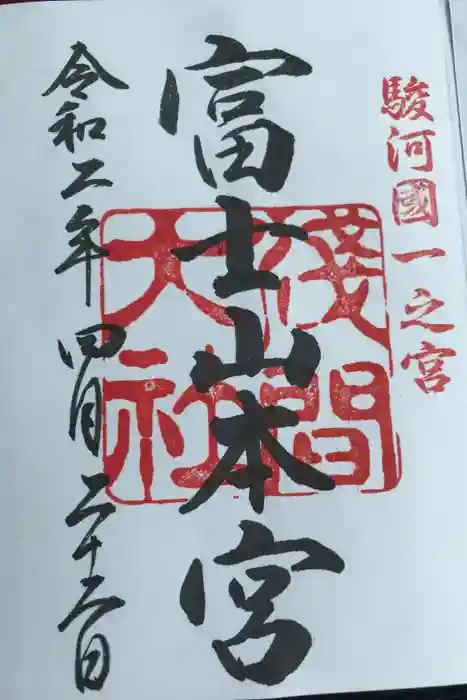 駿河國一之宮
富士山本宮
淺間大社
令和二年四月二十二日